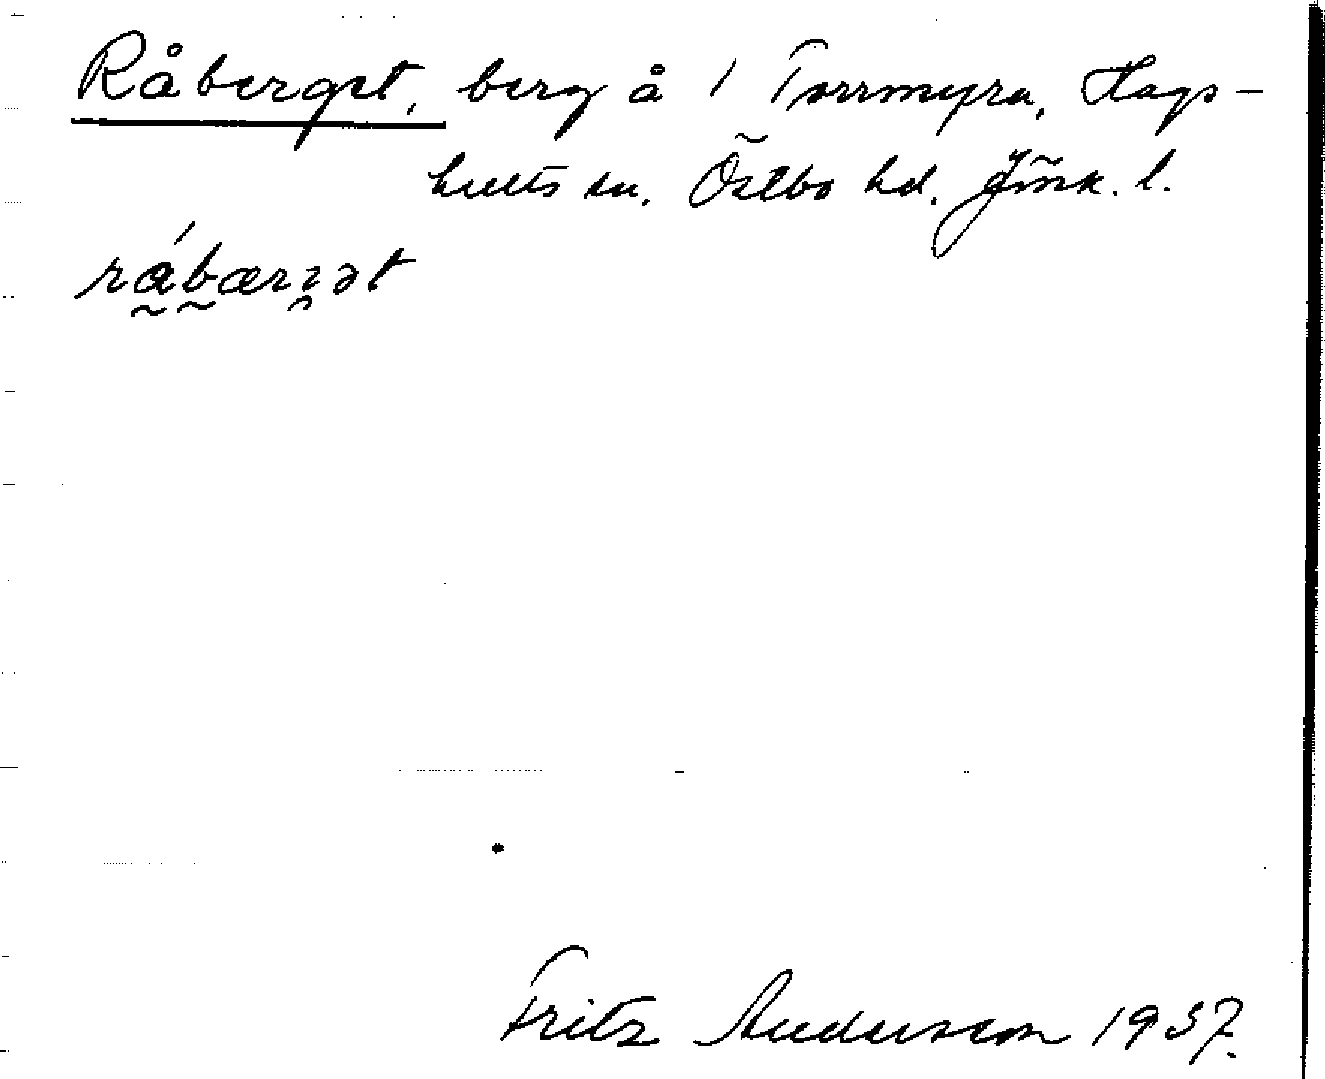 Råberget, berg å 1 Torrmyra, Hags-
hults sn. Östbo hd. Jönk. l.
råbærʒət
Fritz Andersson 1937.